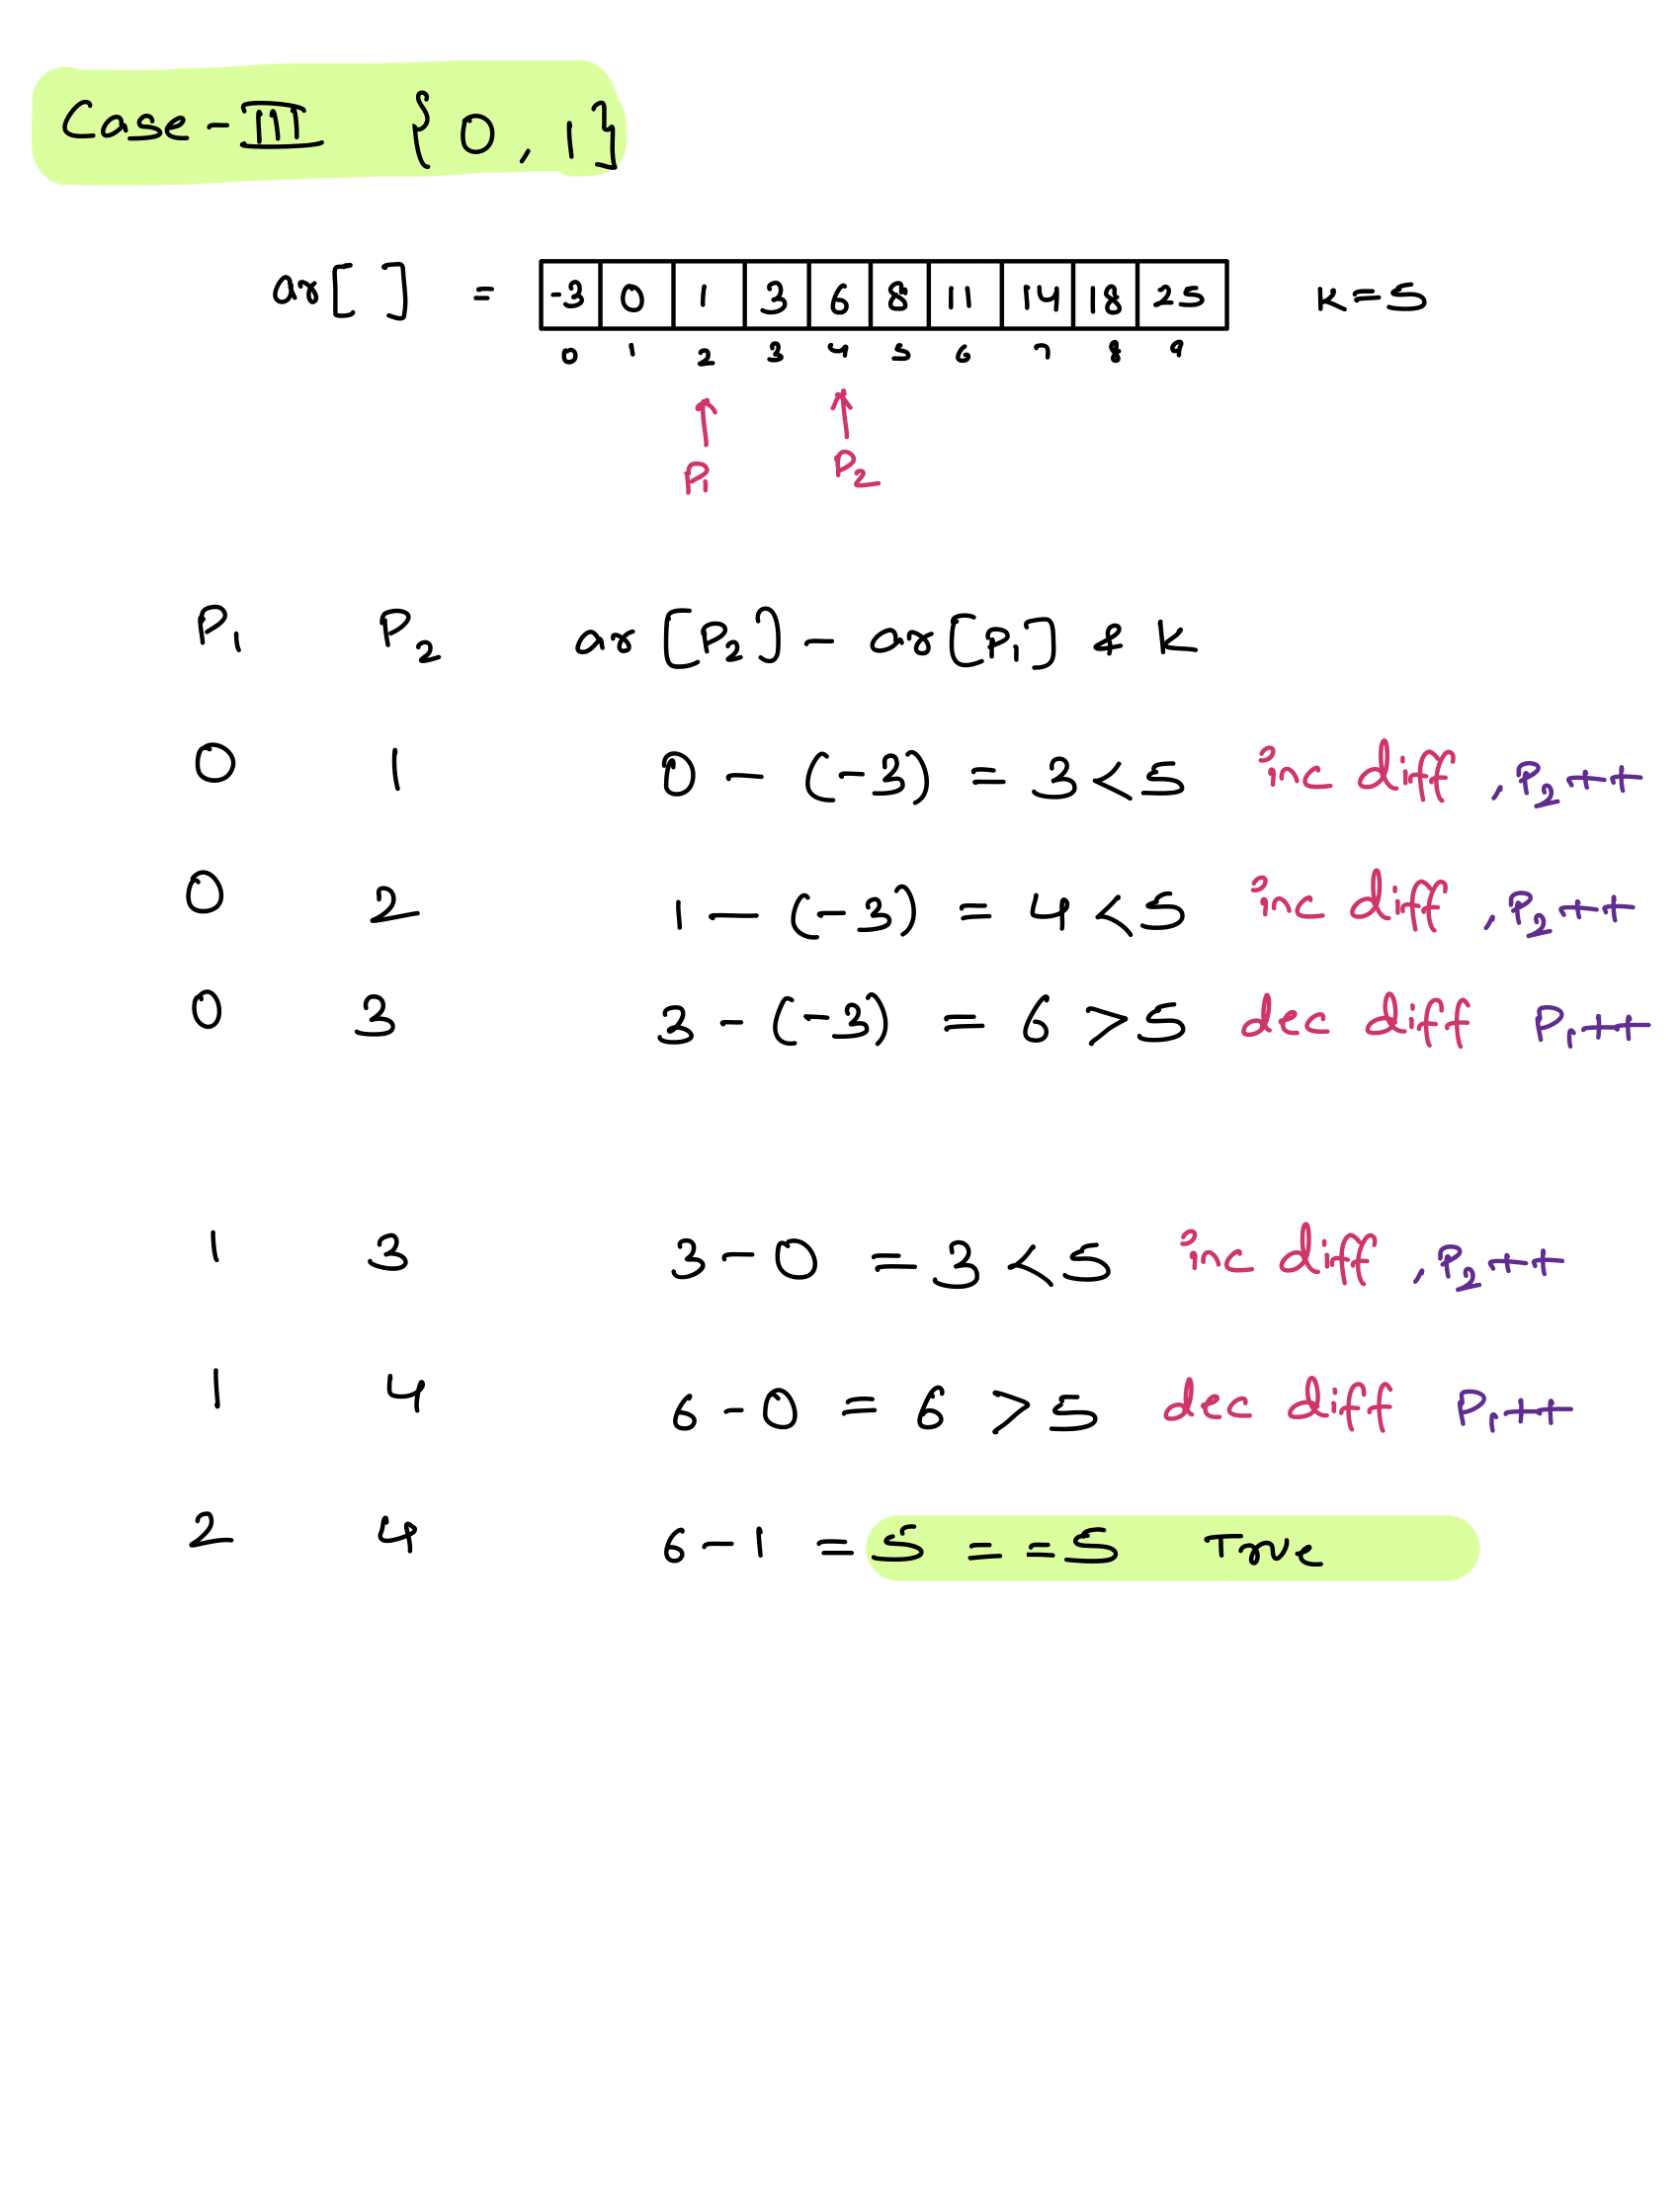 Case-III {0, 1}
ar[ ] = -3 0 1 3 6 8 11 14 18 25 K=5
0 1 2 3 4 5 6 7 8 9
P1 P2
P1 P2 ar[P2] - ar[P1] & K
0 1 0 - (-3) = 3 < 5 inc diff , P2++
0 2 1 - (-3) = 4 < 5 inc diff , P2++
0 3 3 - (-3) = 6 > 5 dec diff P1++
1 3 3 - 0 = 3 < 5 inc diff , P2++
1 4 6 - 0 = 6 > 5 dec diff P1++
2 4 6 - 1 = 5 == 5 True